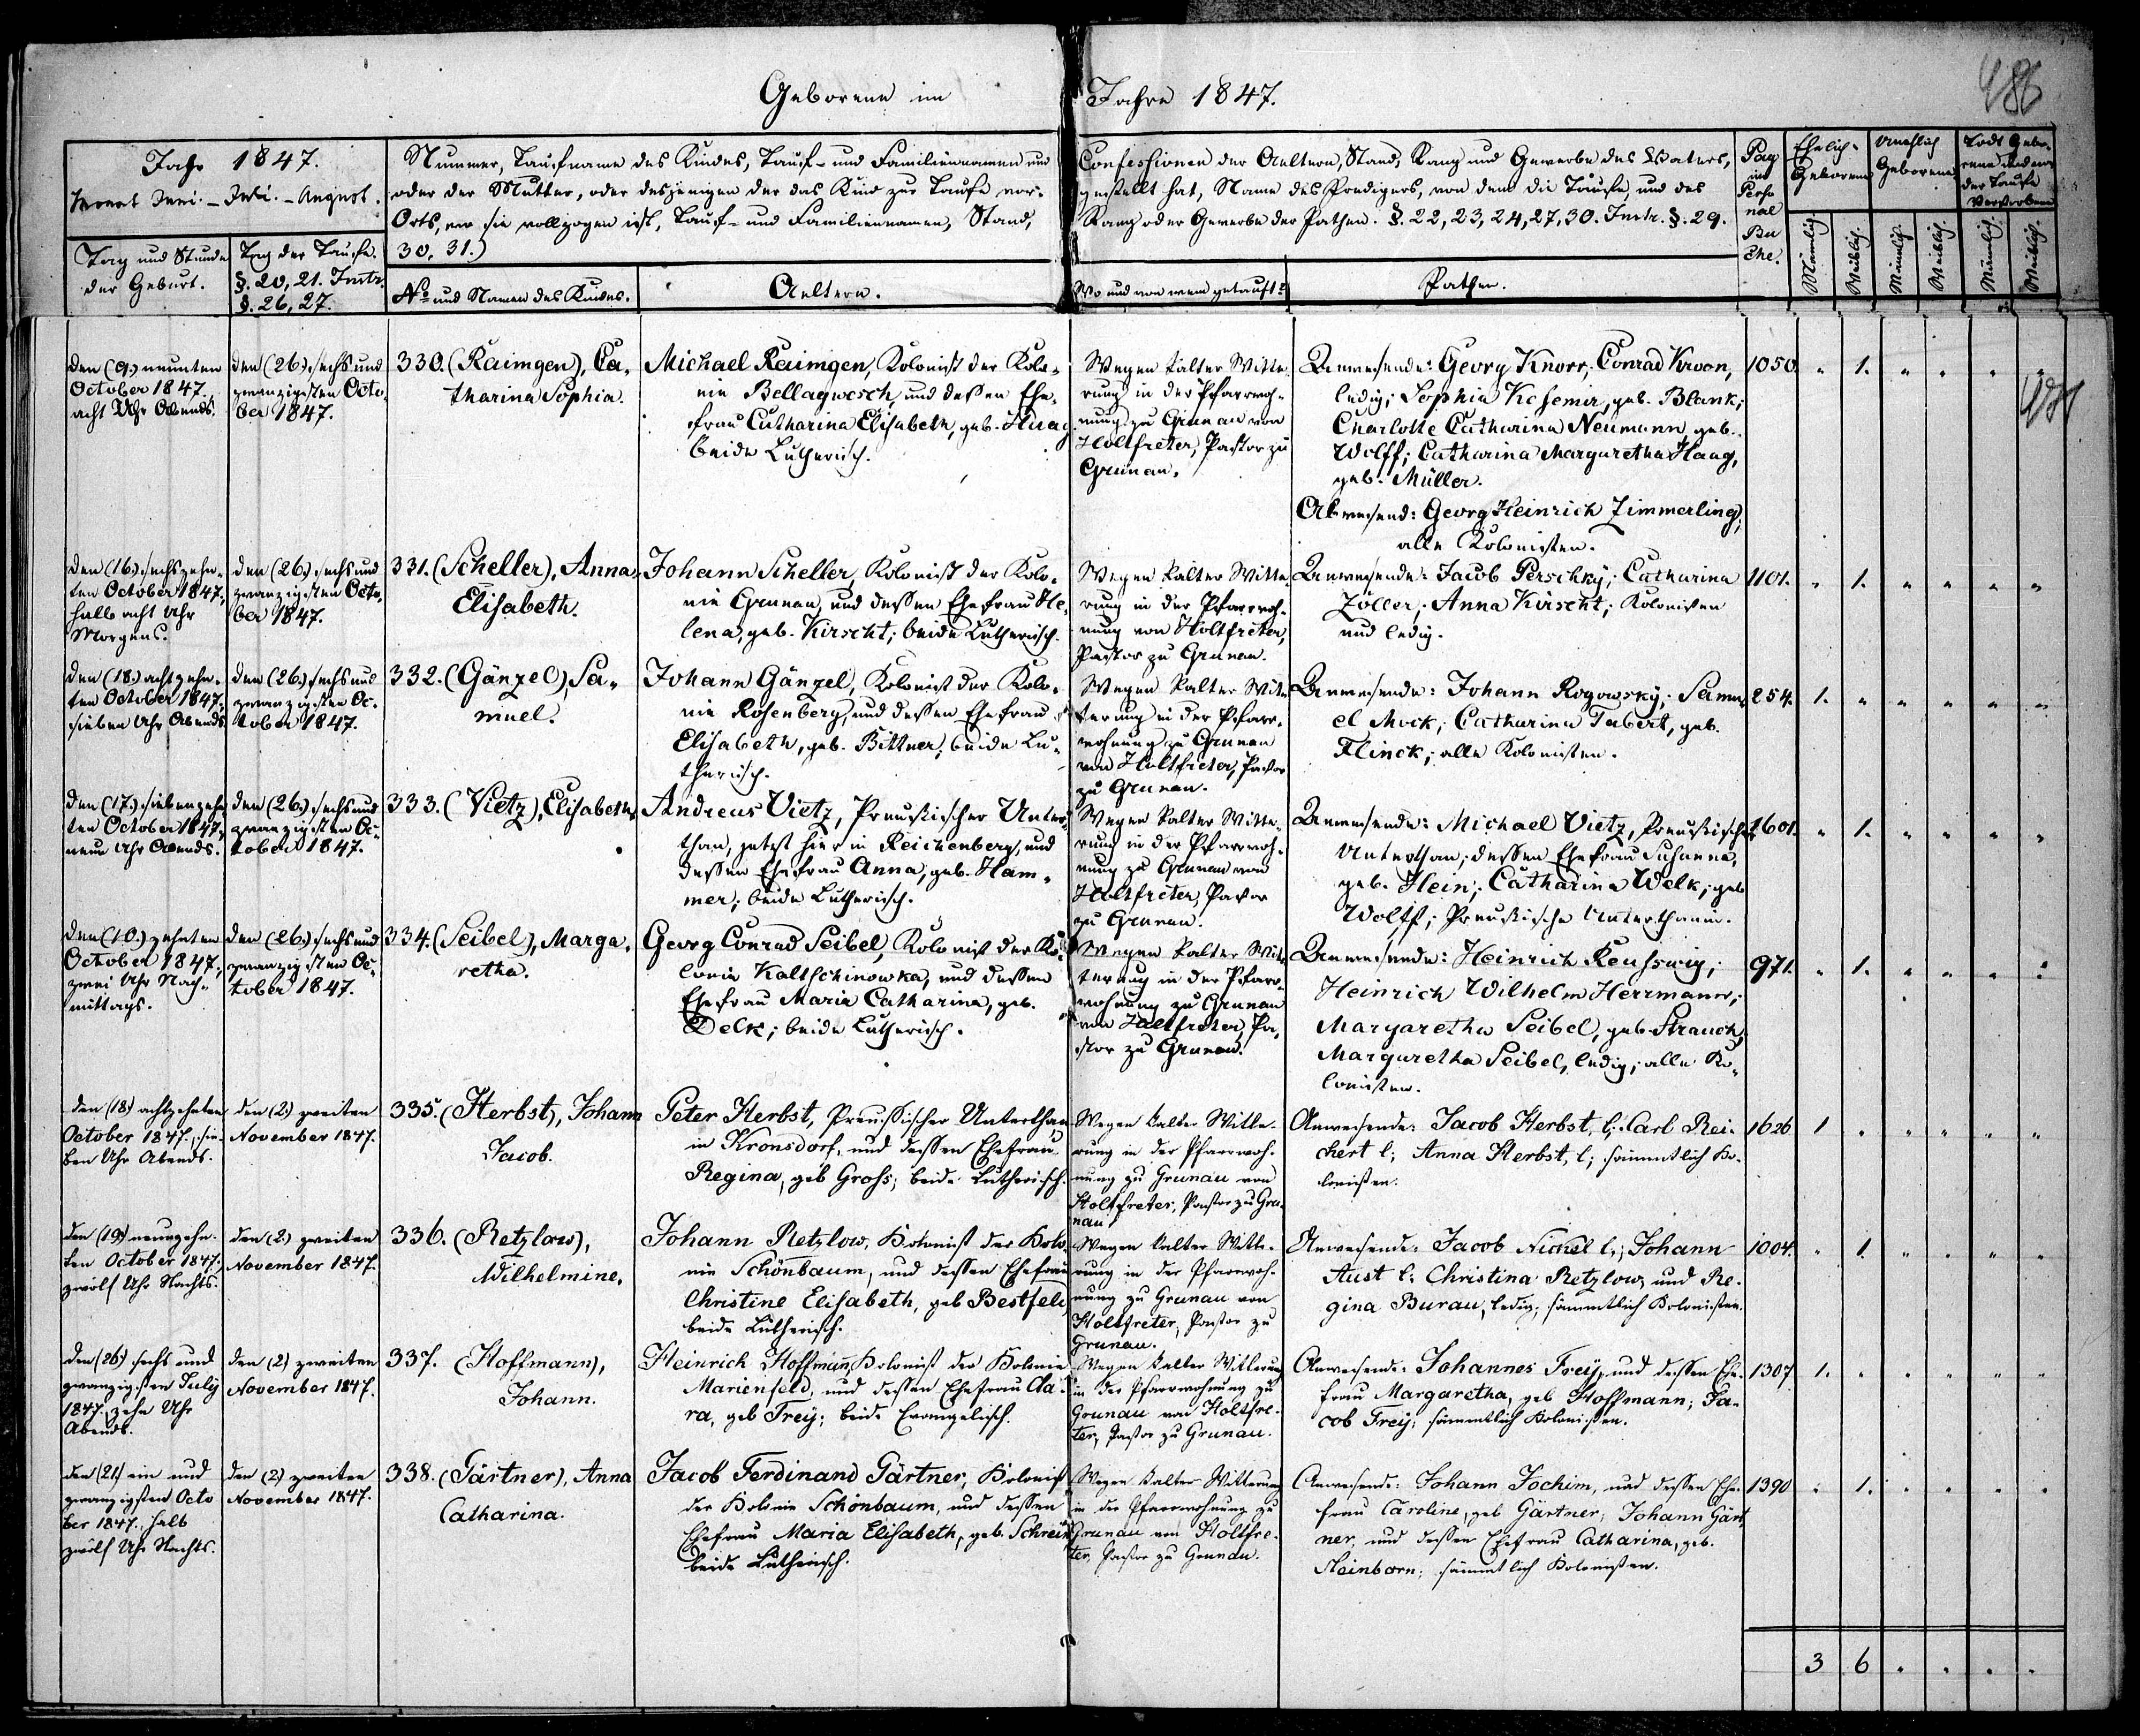 Geborene im Jahre 1847.
486
487
Jahr 1847.
Monat Juni. – Juli. – August.
Tag und Stunde
der Geburt.
Tag der Taufe.
§. 20, 21. Instr.
§. 26, 27.
Nummer, Taufname des Kindes, Tauf- und Familiennamen und
oder der Mutter, oder desjenigen der das Kind zur Taufe vor-
Orts, wo sie vollzogen ist, Tauf- und Familiennamen, Stand,
30. 31.)
No und Namen des Kindes.
Aeltern.
Confessionen der Aeltern, Stand, Rang und Gewerbe des Vaters,
gestellt hat, Name des Predigers, von dem die Taufe, und des
Rang oder Gewerbe der Pathen. §. 22, 23, 24, 27, 30. Instr. §. 29.
Wo und von wem getauft?
Pathen.
Pag
im
Perso
nal
Bu
che.
Ehelich
Geborene
Unehlich
Geborene
Todt Gebo-
rene und vor
der Taufe
Verstorbene
Männlich.
Weiblich.
Männlich.
Weiblich.
Männlich.
Weiblich.
den (9.) neunten
October 1847.
acht Uhr Abends.
den (26.) sechs und
zwanzigsten Octo-
ber 1847.
330. (Raimgen), Ca-
tharina Sophia.
Michael Raimgen, Kolonist der Kolo-
nie Bellagwesch, und dessen Ehe-
frau Catharina Elisabeth, geb. Haag
beide Lutherisch.
Wegen kalter Witte-
rung in der Pfarrwoh-
nung zu Grunau von
Holtfreter, Pastor zu
Grunau.
Anwesende: Georg Knorr; Conrad Kroon,
ledig; Sophia Kesemer, geb. Blank;
Charlotte Catharina Neumann geb.
Wolff; Catharina Margaretha Haag,
geb. Müller.
Abwesend: Georg Heinrich Zimmerling;
alle Kolonisten.
1050. " 1. " " " "
den (16.) sechszehn-
ten October 1847.,
halb acht Uhr
Morgens.
den (26.) sechs und
zwanzigsten Octo-
ber 1847.
331. (Scheller), Anna
Elisabeth.
Johann Scheller, Kolonist der Kolo-
nie Grunau, und dessen Ehefrau He-
lena, geb. Kirscht; beide Lutherisch.
Wegen kalter Witte-
rung in der Pfarrwoh-
nung von Holtfreter,
Pastor zu Grunau.
Anwesende: Jacob Perschky; Catharina
Zöller; Anna Kirscht; Kolonisten
und ledig.
1101. " 1. " " " "
den (18.) achtzehn-
ten October 1847.,
sieben Uhr Abends.
den (26.) sechs und
zwanzigsten Oc-
tober 1847.
332. (Gänzel), Sa-
muel.
Johann Gänzel, Kolonist der Kolo-
nie Rosenberg, und dessen Ehefrau
Elisabeth, geb. Bittner; beide Lu-
therisch.
Wegen kalter Wit-
terung in der Pfarr-
wohnung zu Grunau
von Holtfreter, Pastor
zu Grunau.
Anwesende: Johann Rogowsky; Samu-
el Mock; Catharina Tabert, geb.
Flinck; alle Kolonisten.
254. 1. " " " " "
den (17.) siebenzehn
ten October 1847.,
neun Uhr Abends.
den (26.) sechs und
zwanzigsten Oc-
tober 1847.
333. (Vietz), Elisabeth.
Andreas Vietz, Preußischer Unter-
than, jetzt hier in Reichenberg, und
dessen Ehefrau Anna, geb. Ham-
mer; beide Lutherisch.
Wegen kalter Witte-
rung in der Pfarrwoh-
nung zu Grunau von
Holtfreter, Pastor
zu Grunau.
Anwesende: Michael Vietz, Preußischer
Unterthan; dessen Ehefrau Susanna,
geb. Hein; Catharina Welk, geb
Wolff; Preußische Unterthanin.
1601. " 1. " " " "
den (10.) zehnten
October 1847.,
zwei Uhr Nach-
mittags.
den (26.) sechs und
zwanzigsten Oc-
tober 1847.
334. (Seibel), Marga-
retha.
Georg Conrad Seibel, Kolonist der Ko-
lonie Kaltschinowka, und dessen
Ehefrau Maria Catharina, geb.
Delk; beide Lutherisch.
Wegen kalter Wit-
terung in der Pfarr-
wohnung zu Grunau
von Holtfreter, Pa-
stor zu Grunau.
Anwesende: Heinrich Reusswig;
Heinrich Wilhelm Herrmann;
Margaretha Seibel, geb. Strauch;
Margaretha Seibel, ledig; alle Ko-
lonisten.
971. " 1. " " " "
den (18.) achtzehnten
October 1847., sie-
ben Uhr Abends.
den (2.) zweiten
November 1847.
335. (Herbst), Johann
Jacob.
Peter Herbst, Preussischer Unterthan
in Kronsdorf, und dessen Ehefrau
Regina, geb Gross; beide Lutherisch.
Wegen kalter Witte-
rung in der Pfarrwoh-
nung zu Grunau von
Holtfreter, Pastor zu Gru-
nau.
Anwesende: Jacob Herbst, l; Carl Rei-
chert l; Anna Herbst, l; sämmtlich Ko-
lonisten.
1626 1 " " " " "
den (19.) neunzehn-
ten October 1847.
zwölf Uhr Nachts.
den (2.) zweiten
November 1847.
336. (Retzlow),
Wilhelmine.
Johann Retzlow, Kolonist der Kolo-
nie Schönbaum, und dessen Ehefrau
Christine Elisabeth, geb Bestfeld,
beide Lutherisch.
Wegen kalter Witte-
rung in der Pfarrwoh-
nung zu Grunau von
Holtfreter, Pastor zu
Grunau.
Anwesende: Jacob Nickel l; Johann
Aust l; Christina Retzlow, und Re-
gina Burau, ledig; sämmtlich Kolonisten.
1004. " 1. " " " "
den (26.) sechs und
zwanzigsten July
1847., zehn Uhr
Abends.
den (2) zweiten
November 1847.
337. (Hoffmann),
Johann.
Heinrich Hoffmann, Kolonist der Kolonie
Marienfeld, und dessen Ehefrau Cla-
ra, geb Frey; beide Evangelisch.
Wegen kalter Witterung
in der Pfarrwohnung zu
Grunau von Holtfre-
ter, Pastor zu Grunau.
Anwesende: Johannes Frey, und dessen Ehe-
frau Margaretha, geb Hoffmann; Ja-
cob Frey; sämmtlich Kolonisten.
1307 1. " " " " "
den (21) ein und
zwanzigsten Octo
ber 1847., halb
zwölf Uhr Nachts.
den (2) zweiten
November 1847.
338. (Gärtner), Anna
Catharina.
Jacob Ferdinand Gärtner, Kolonist
der Kolonie Schönbaum, und dessen
Ehefrau Maria Elisabeth, geb. Schrein
beide Lutherisch.
Wegen kalter Witterung
in der Pfarrwohnung zu
Grunau von Holtfre-
ter, Pastor zu Grunau.
Anwesende: Johann Jochim, und dessen Ehe-
frau Caroline, geb Gärtner; Johann Gärt-
ner, und dessen Ehefrau Catharina, geb.
Steinborn; sämmtlich Kolonisten.
1390 " 1. " " " "
3 6 " " " "